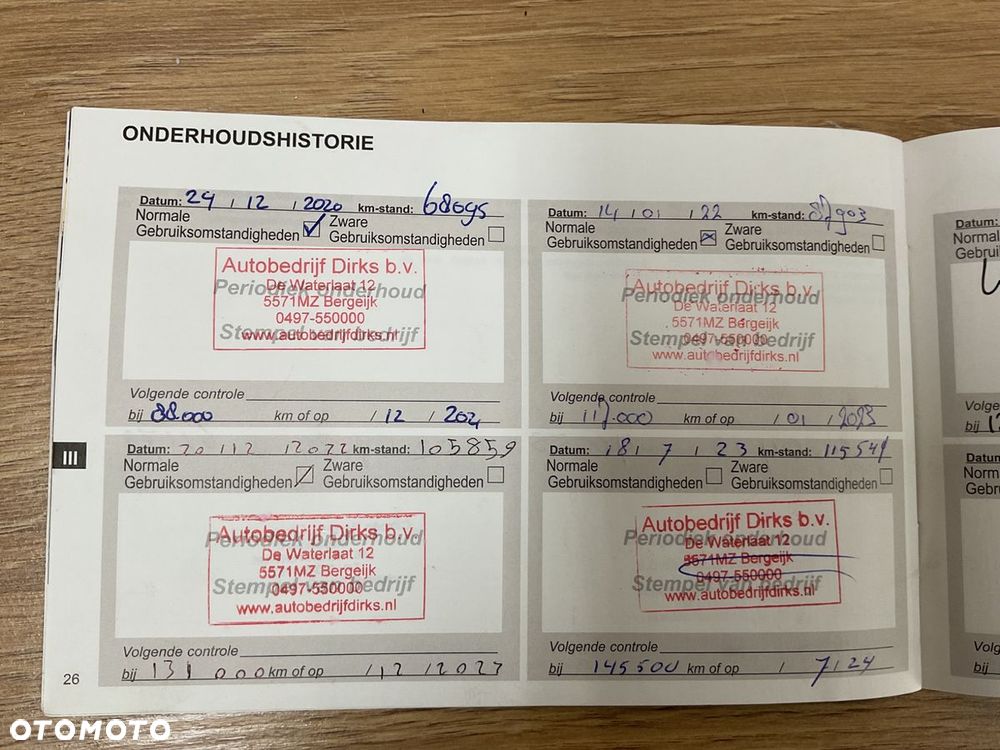 ONDERHOUDSHISTORIE
Datum: 24 / 12 / 2020 km-stand: 68095
Normale Gebruiksomstandigheden
Zware Gebruiksomstandigheden
Autobedrijf Dirks b.v.
De Waterlaat 12
Periodiek onderhoud
5571MZ Bergeijk
0497-550000
Stempel van bedrijf
www.autobedrijfdirks.nl
Volgende controle
bij 88.000 km of op / 12 / 2021
Datum: 14 / 01 / 22 km-stand: 87903
Normale Gebruiksomstandigheden
Zware Gebruiksomstandigheden
Autobedrijf Dirks b.v.
Periodiek onderhoud
De Waterlaat 12
5571MZ Bergeijk
0497-550000
Stempel van bedrijf
www.autobedrijfdirks.nl
Volgende controle
bij 117.000 km of op / 01 / 2023
Datum: 20 / 12 / 2022 km-stand: 105859
Normale Gebruiksomstandigheden
Zware Gebruiksomstandigheden
Autobedrijf Dirks b.v.
Periodiek onderhoud
De Waterlaat 12
5571MZ Bergeijk
Stempel van bedrijf
0497-550000
www.autobedrijfdirks.nl
Volgende controle
bij 131 000 km of op / 12 / 2023
Datum: 18 / 7 / 23 km-stand: 115541
Normale Gebruiksomstandigheden
Zware Gebruiksomstandigheden
Autobedrijf Dirks b.v.
Periodiek onderhoud
De Waterlaat 12
5571MZ Bergeijk
0497-550000
Stempel van bedrijf
www.autobedrijfdirks.nl
Volgende controle
bij 145500 km of op / 7 / 24
III
26
Datum:
bij
bij
OTOMOTO